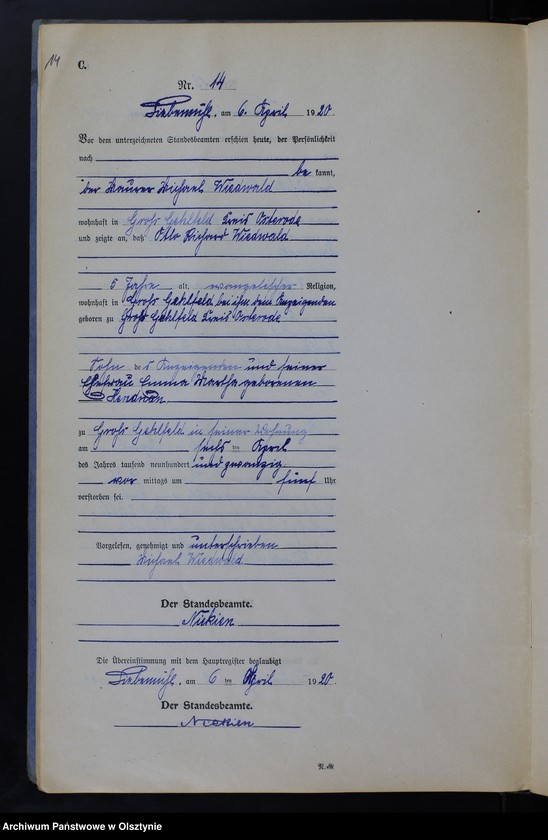 14
C.
Nr. 14
Liebemühl, am 6. April 1920
Vor dem unterzeichneten Standesbeamten erschien heute, der Persönlichkeit
nach
be kannt,
der Maurer Michael Wiedwald
wohnhaft in Groß Gehlfeld Kreis Osterode
und zeigte an, daß Otto Richard Wiedwald
5 Jahre alt, evangelischer Religion,
wohnhaft in Groß Gehlfeld bei ihm dem Anzeigenden
geboren zu Groß Gehlfeld Kreis Osterode
Sohn des Anzeigenden und seiner
Ehefrau Emma Martha geborenen
zu Groß Gehlfeld in seiner Wohnung
am sechs ten April
des Jahres tausend neunhundert und zwanzig
vor mittags um fünf Uhr
verstorben sei.
Vorgelesen, genehmigt und unterschrieben
Michael Wiedwald
Der Standesbeamte.
Niekien
Die Übereinstimmung mit dem Hauptregister beglaubigt
Liebemühl, am 6 ten April 1920
Der Standesbeamte.
Niekien
Archiwum Państwowe w Olsztynie